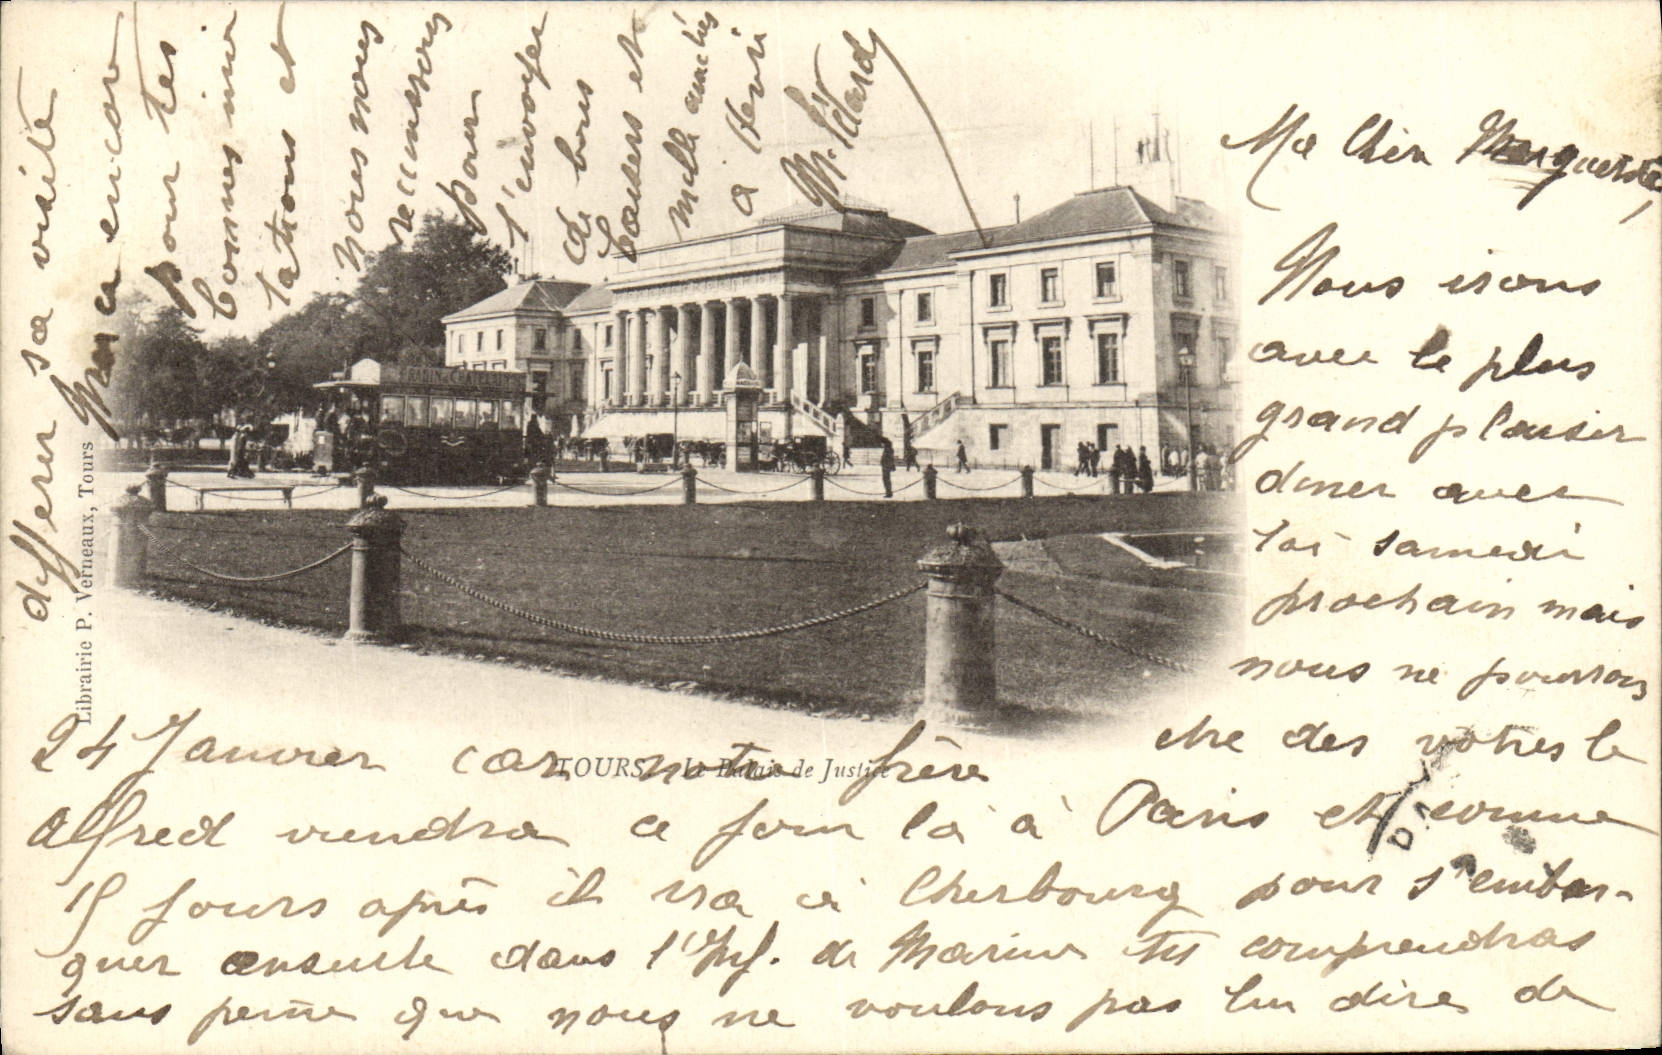 Ma Chère Marguerite,
Nous irons
avec le plus
grand plaisir
diner avec
toi samedi
prochain mais
nous ne pourrons
etre des votres le
24 Janvier car notre frère
Alfred viendra ce jour là à Paris et comme
15 jours après il ira à Cherbourg pour s'embar-
quer ensuite dans l'Inf. de Marine tu comprendras
sans peine que nous ne voulons pas lui dire de
differer sa visite
Merci encore
pour tes
bonnes invi
tations et
nous nous
réunissons
pour
t'envoyer
de bons
baisers et
mille amitiés
a Henri
TOURS. Le Palais de Justice
Librairie P. Verneaux, Tours